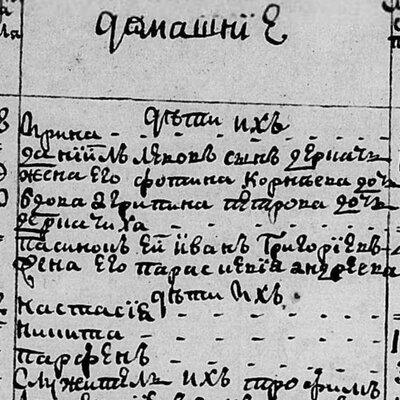 домашнїе
дѣти ихъ
Ирина
данїилъ яковъ сынъ дергачъ
жена его фотина корнѣева доч
вдова агрипина петрова доч
дергачиха
пасинокъ ей їванъ григорїевъ
жена его параскевїа андреева
дѣти ихъ
настасїя
никита
парфенъ
служитель ихъ трофимъ